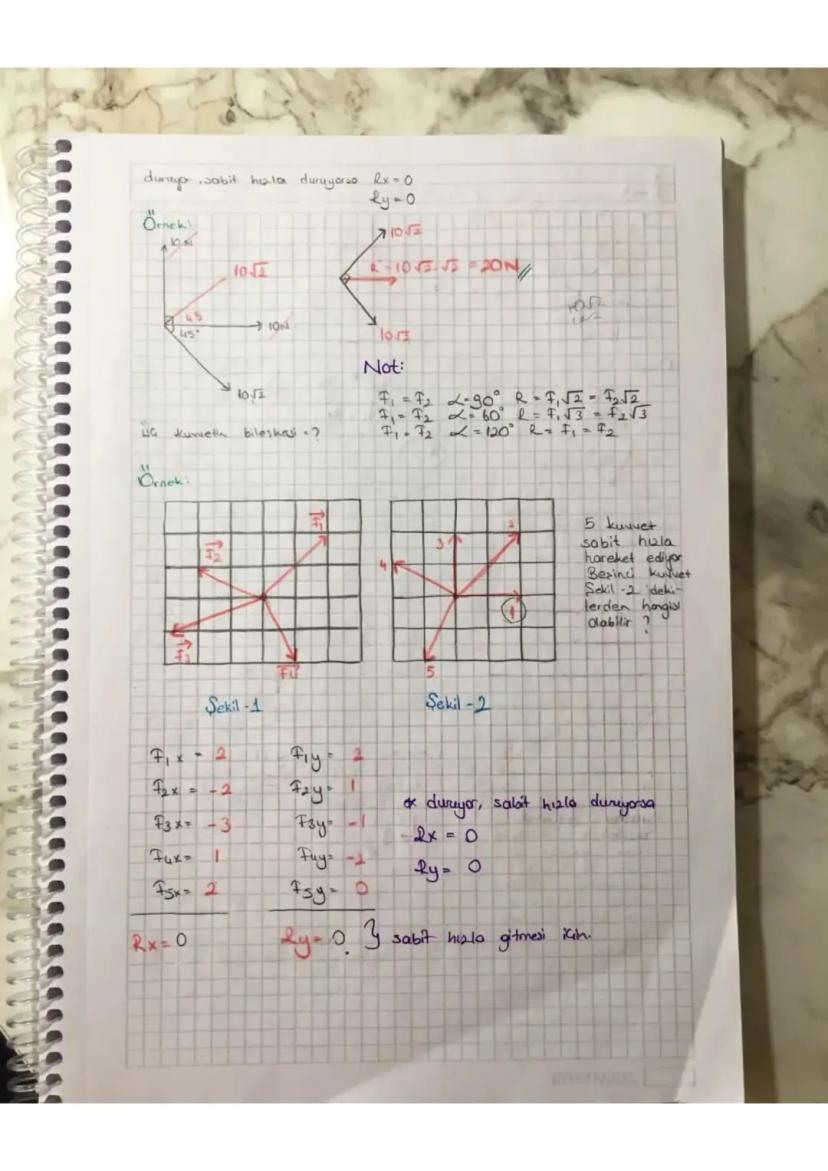 duruyo, sabit hızla duruyorsa Rx = 0
Ry = 0
Örnek:
10N
10√2
45
45°
10N
10√2
10√2
R = 10√2.√2 = 20N
10√2
Not:
F₁ = F₂ α = 90° R = F₁√2 = F₂√2
F₁ = F₂ α = 60° R = F₁√3 = F₂√3
F₁ = F₂ α = 120° R = F₁ = F₂
üç kuvvetin bileşkesi = ?
Örnek:
F₁
F₂
F₃
F₄
Şekil-1
1
2
3
4
5
Şekil-2
5 kuvvet
sabit hızla
hareket ediyor
Beşinci kuvvet
Şekil-2 'deki-
lerden hangisi
olabilir ?
F₁x = 2 F₁y = 2
F₂x = -2 F₂y = 1
F₃x = -3 F₃y = -1
F₄x = 1 F₄y = -2
F₅x = 2 F₅y = 0
Rx = 0 Ry = 0 } sabit hızla gitmesi için.
* duruyor, sabit hızla duruyorsa
Rx = 0
Ry = 0